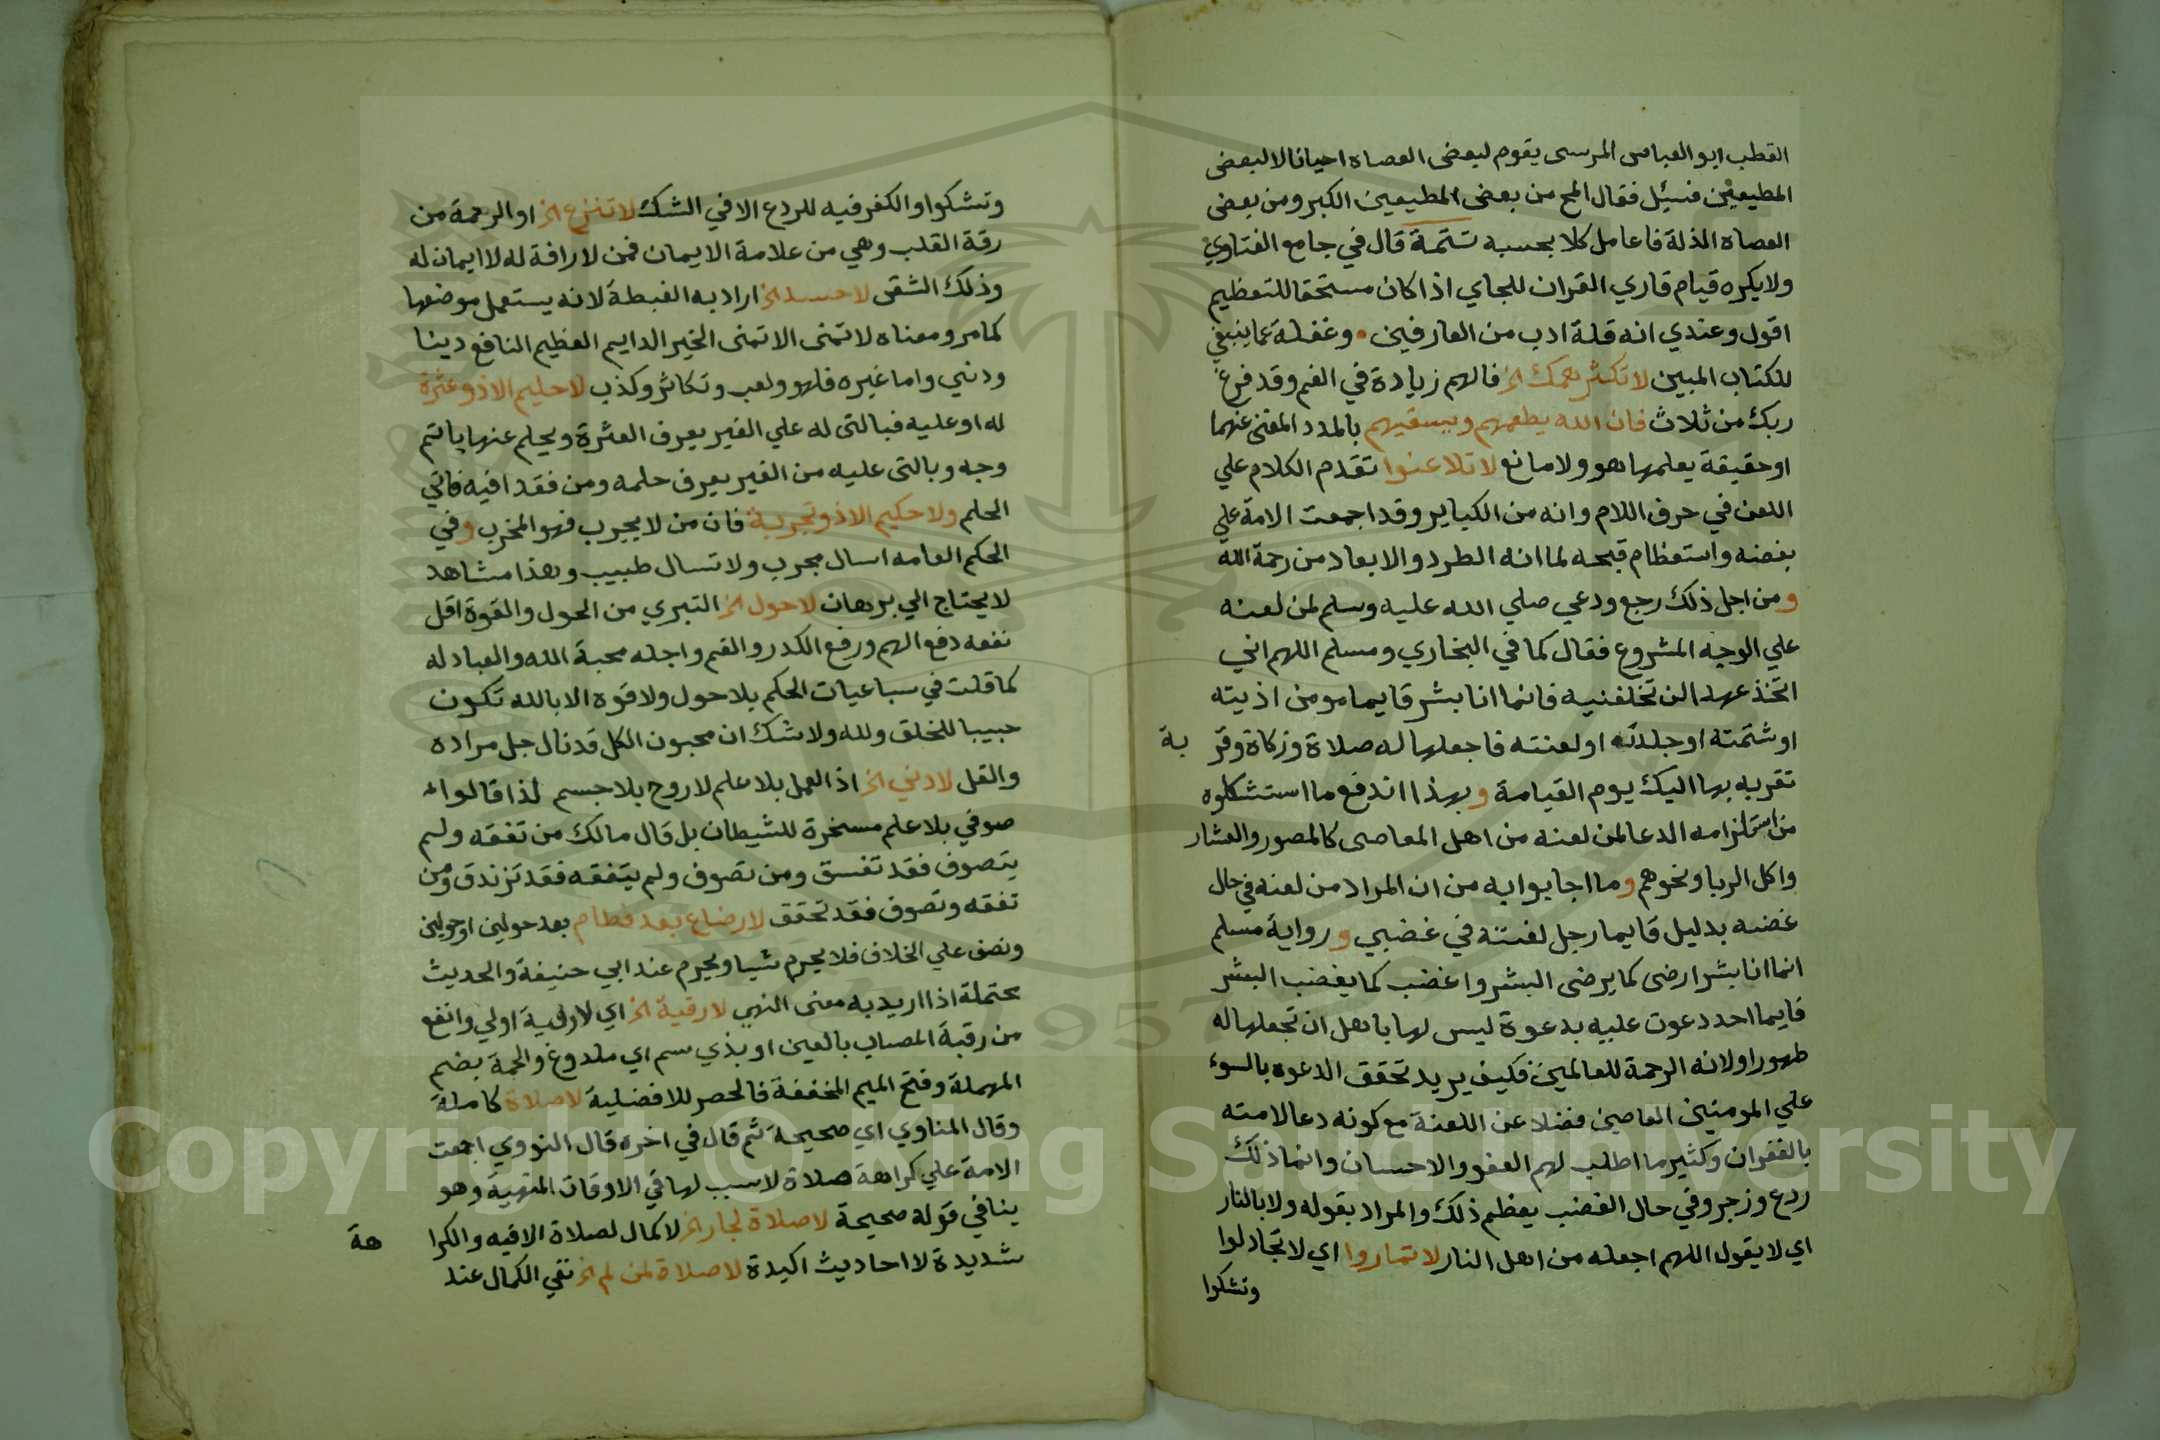 القطب ابو العباس المرسى يقوم لبعض العصاه احيانا لا لبعض
المطيعين فسئل فقال المح من بعض المطيعين الكبر ومن بعض
العصاه المذلة فاعامل كلا بحسبه تتمة قال في جامع الفتاوي
ولا يكره قيام قاري القران للجاي اذا كان مستحقا للتعظيم
اقول وعندي انه قلة ادب من العارفين وغفلة عما ينبغي
للكتاب المبين لا تكثر همك الخ فالهم زيادة في الغم وقد فرغ
ربك من ثلاث فان الله يطعمهم ويسقيهم بالمدد المغني عنهما
او حقيقة يعلمها هو ولا مانع لا تلاعنوا تقدم الكلام علي
اللعن في حرف اللام وانه من الكباير وقد اجمعت الامة علي
بغضه واستعظام قبحه لما انه الطرد والابعاد من رحمة الله
ومن اجل ذلك رجع ودعي صلي الله عليه وسلم لمن لعنه
علي الوجه المشروع فقال كما في البخاري ومسلم اللهم اني
اتخذ عهدا لن تخلفنيه فانما انا بشر فايما مومن اذيته
او شتمته او جلدته او لعنته فاجعلها له صلاة وزكاة وقر بة
تقربه بها اليك يوم القيامة وبهذا اندفع ما استشكلوه
من استلزامه الدعا لمن لعنه من اهل المعاصى كالمصور والعشار
واكل الربا ونحوهم وما اجابوا به من ان المراد من لعنه في حال
غضبه بدليل فايما رجل لعنته في غضبي ورواية مسلم
انما انا بشر ارضى كما يرضى البشر واغضب كما يغضب البشر
فايما احد دعوت عليه بدعوة ليس لها باهل ان تجعلها له
طهورا ولانه الرحمة للعالمين فكيف يريد تحقق الدعوه بالسوء
علي المومنين العاصين فضلا عن اللعنة مع كونه دعا لامته
بالغفران وكثيرما اطلب لهم العفو والاحسان وانما ذلك
ردع وزجر وفي حال الغضب يعظم ذلك والمراد بقوله ولا بالنار
اي لا يقول اللهم اجعله من اهل النار لا تماروا اي لا تجادلوا
وتشكوا
وتشكوا والكفر فيه للردع الا في الشك لا تنزع الخ او الرحمة من
رقة القلب وهي من علامة الايمان فمن لا رافة له لا ايمان له
وذلك الشقى لا حسد الخ اراد به الغبطة لانه يستعمل موضعها
كما مر ومعناه لا تمنى الا تمنى الخير الدايم العظيم النافع دينا
ودنيي واما غيره فلهو ولعب وتكاثر وكذب لا حليم الا ذو عثرة
له او عليه فبالتى له علي الغير يعرف العثرة ويحلم عنها باتم
وجه وبالتى عليه من الغير يعرف حلمه ومن فقدا فيه فاني
الحلم ولا حكيم الا ذو تجربة فان من لا يجرب فهو المخرب وفي
الحكم العامه اسال مجرب ولا تسال طبيب وهذا مشاهد
لا يحتاج الي برهان لا حول الخ التبري من الحول والقوة اقل
نفعه دفع الهم ورفع الكدر والغم واجله محبة الله والعباد له
كما قلت في سباعيات الحكم بلا حول ولا قوه الا بالله تكون
حبيبا للخلق ولله ولا شك ان محبون الكل قد نال جل مراده
والقل لا دني الخ اذ العمل بلا علم لا روح بلا جسم لذا قالوا
صوفي بلا علم مسخرة للشيطان بل قال مالك من تفقه ولم
يتصوف فقد تفسق ومن تصوف ولم يتفقه فقد تزندق ومن
تفقه وتصوف فقد تحقق لا رضاع بعد فطام بعد حولين او حولين
ونصف علي الخلاف فلا يحرم شيا ويحرم عند ابي حنيفة والحديث
يحتمله اذا اريد به معنى النهي لا رقية الخ اي لا رقية اولي وانفع
من رقية المصاب بالعين او بذي سم اي ملدوغ والحمة بضم
المهملة وفتح الميم المخففة فالحصر للافضلية لا صلاة كاملة
وقال المناوي اي صحيحة ثم قال في اخره قال النووي اجمعت
الامة علي كراهة صلاة لا سبب لها في الاوقات المنهية وهو
ينافي قوله صحيحة لا صلاة لجار الخ لا كمال لصلاة الا فيه والكرا هة
شديدة لا احاديث اكيدة لا صلاة لمن لم الخ نفي الكمال عند
Copyright © King Saud University
1957